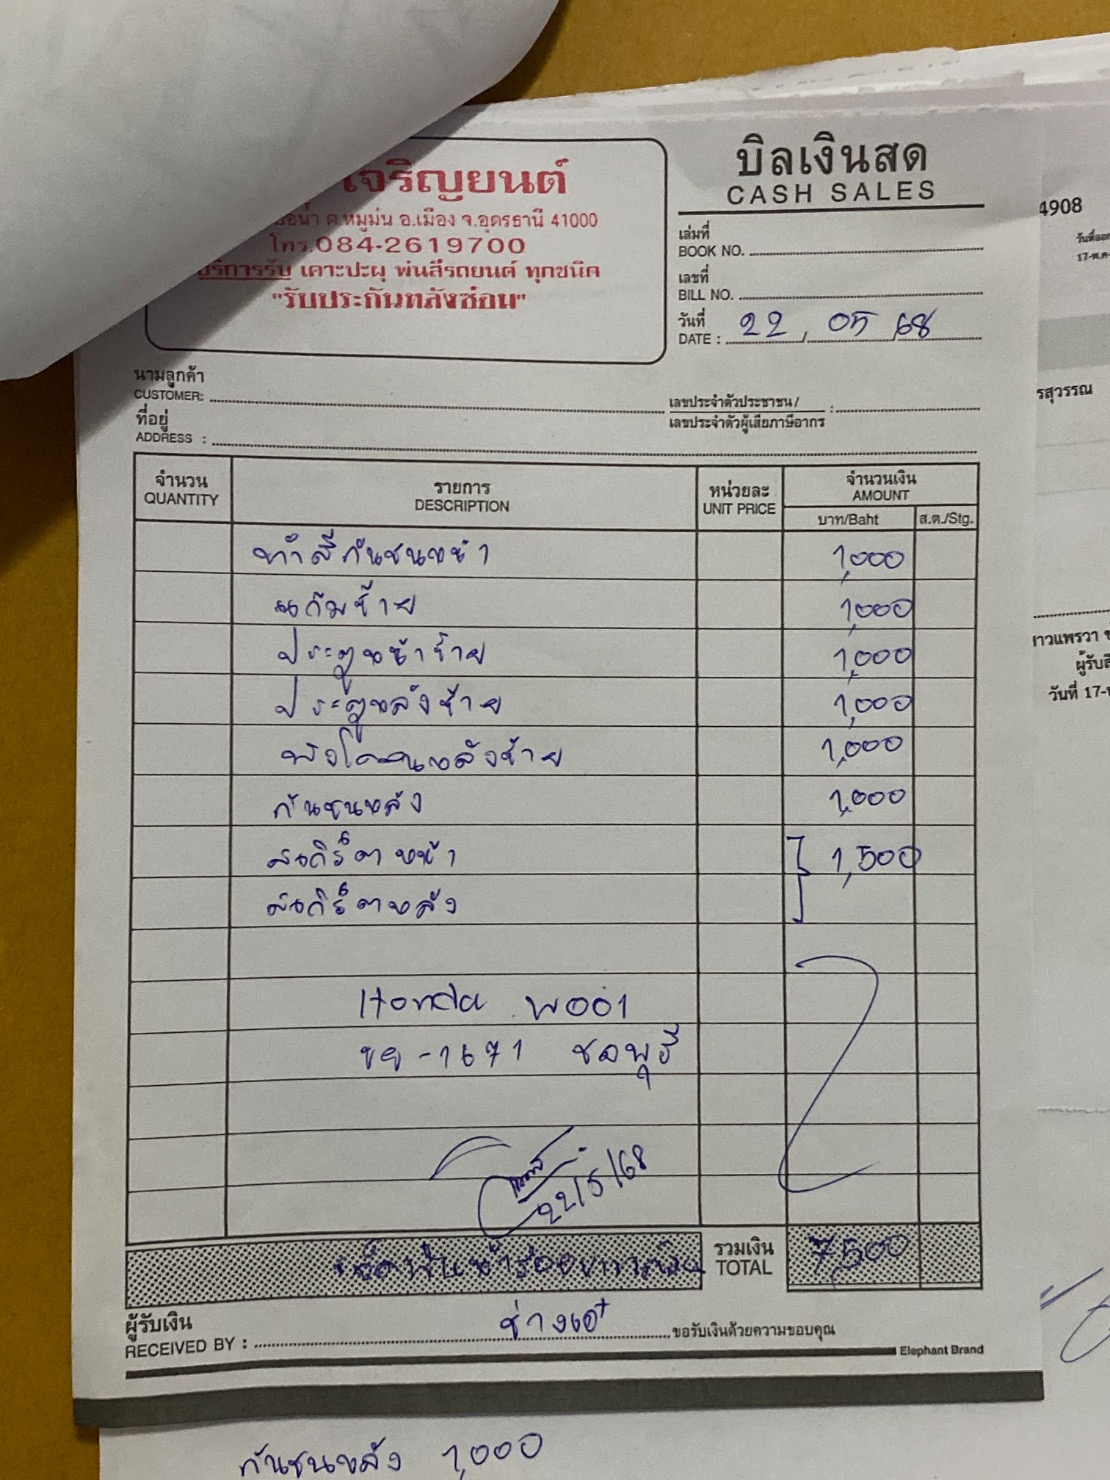 เจริญยนต์
ต.หมูม่น อ.เมือง จ.อุดรธานี 41000
โทร.084-2619700
บริการรับ เคาะปะผุ พ่นสีรถยนต์ ทุกชนิด
"รับประกันหลังซ่อม"
บิลเงินสด
CASH SALES
เล่มที่
BOOK NO.
เลขที่
BILL NO.
วันที่
DATE : 22 / 05 / 68
นามลูกค้า
CUSTOMER:
เลขประจำตัวประชาชน /
เลขประจำตัวผู้เสียภาษีอากร :
ที่อยู่
ADDRESS :
จำนวน รายการ หน่วยละ จำนวนเงิน
QUANTITY DESCRIPTION UNIT PRICE AMOUNT
บาท/Baht ส.ต./Stg.
ทำสีกันชนหน้า 1,000
แก้มซ้าย 1,000
ประตูหน้าซ้าย 1,000
ประตูหลังซ้าย 1,000
บังโคลนหลังซ้าย 1,000
กันชนหลัง 1,000
สเกิร์ตหน้า 1,500
สเกิร์ตหลัง
Honda
-1671 ชลบุรี
22/5/68
เจ็ดพันห้าร้อยบาทถ้วน รวมเงิน 7,500
TOTAL
ผู้รับเงิน
RECEIVED BY : ช่าง ขอรับเงินด้วยความขอบคุณ
Elephant Brand
กันชนหลัง 1,000
4908
17-พ.ค-
รสุวรรณ
าวแพรวา
ผู้รับสิ
วันที่ 17-